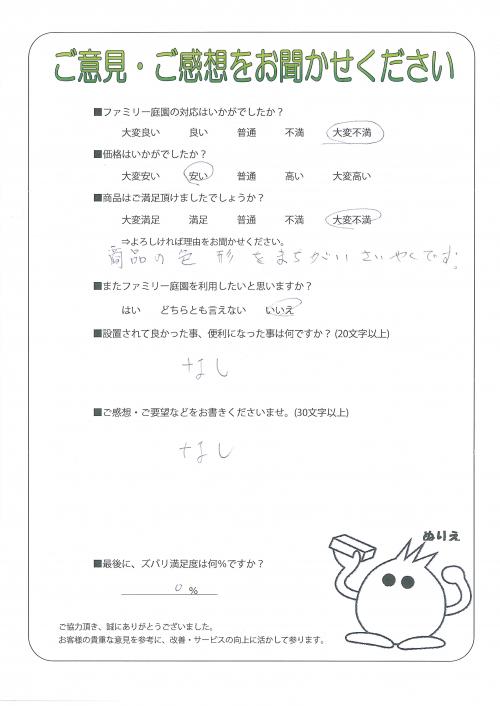 ご意見・ご感想をお聞かせください
■ファミリー庭園の対応はいかがでしたか？
大変良い 良い 普通 不満 大変不満
■価格はいかがでしたか？
大変安い 安い 普通 高い 大変高い
■商品はご満足頂けましたでしょうか？
大変満足 満足 普通 不満 大変不満
⇒よろしければ理由をお聞かせください。
商品の色 形をまちがいさいやくです。
■またファミリー庭園を利用したいと思いますか？
はい どちらとも言えない いいえ
■設置されて良かった事、便利になった事は何ですか？(20文字以上)
なし
■ご感想・ご要望などをお書きくださいませ。(30文字以上)
なし
ぬりえ
■最後に、ズバリ満足度は何％ですか？
0 %
ご協力頂き、誠にありがとうございました。
お客様の貴重な意見を参考に、改善・サービスの向上に活かして参ります。